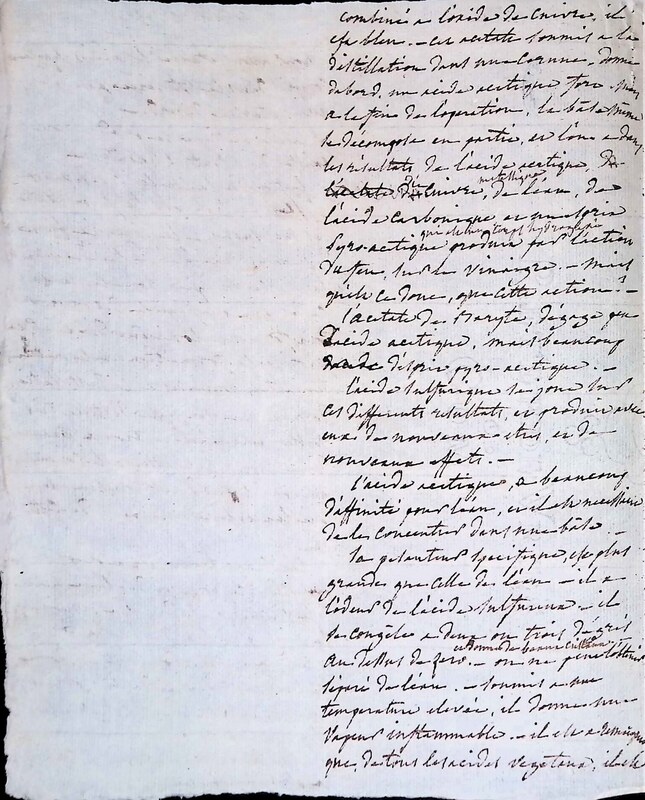 combiné a l'oxide de cuivre, il
est bleu. - cet acetate soumis a la
distillation dans une cornue, donne
dabord, un acide acetique fort. mais
a la fin de l'operation, la base même
se décompose en partie, et l'on a dans
les résultats de l'acide acetique, du
cuivre metallique, de l'eau, de
l'acide carbonique et un esprit
qui est un hydrogene
pyro-acetique produit par l'action
du feu, sur le vinaigre. - mais
qu'est ce donc, que cette action? -
l'acetate de Baryte, dégage peu
d'acide acetique, mais beaucoup
d'esprit pyro-acetique. -
l'acide sulfurique se joue sur
ces differents resultats, et produit avec
eux de nouveaux etres, et de
nouveaux effets. -
l'acide acetique, a beaucoup
d'affinité pour l'eau, et il est necessaire
de les concentrer dans une base -
sa pesanteur specifique, est plus
grande que celle de l'eau - il a
l'odeur de l'acide sulfureux - il
se congèle a deux ou trois degrés
et donne de beaux cristaux
au dessus de zero. - on ne peut l'obtenir
séparé de l'eau. - soumis a une
temperature elevée, il donne une
vapeur inflammable. - il est a remarquer
que, de tous les acides vegetaux, il est